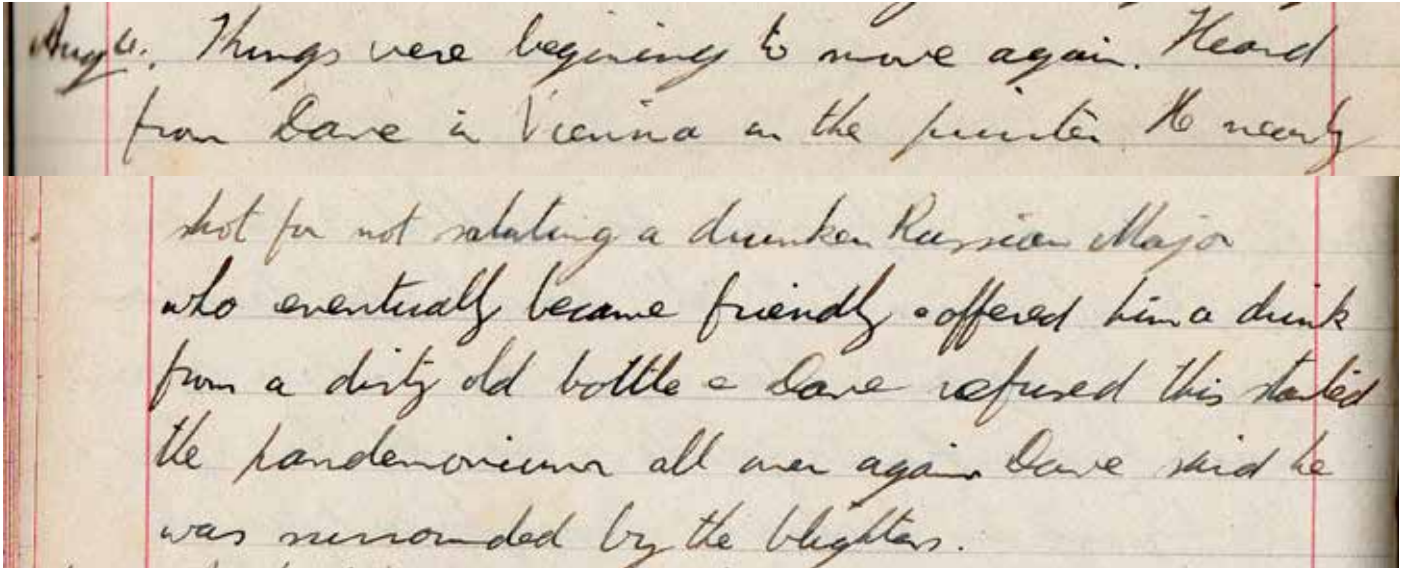 Aug 6. Things were begining to move again. Heard
from Dave in Vienna on the printer He nearly
shot for not saluting a drunken Russian Major
who eventually became friendly & offered him a drink
from a dirty old bottle & Dave refused this started
the pandemonium all over again Dave said he
was surrounded by the blighters.